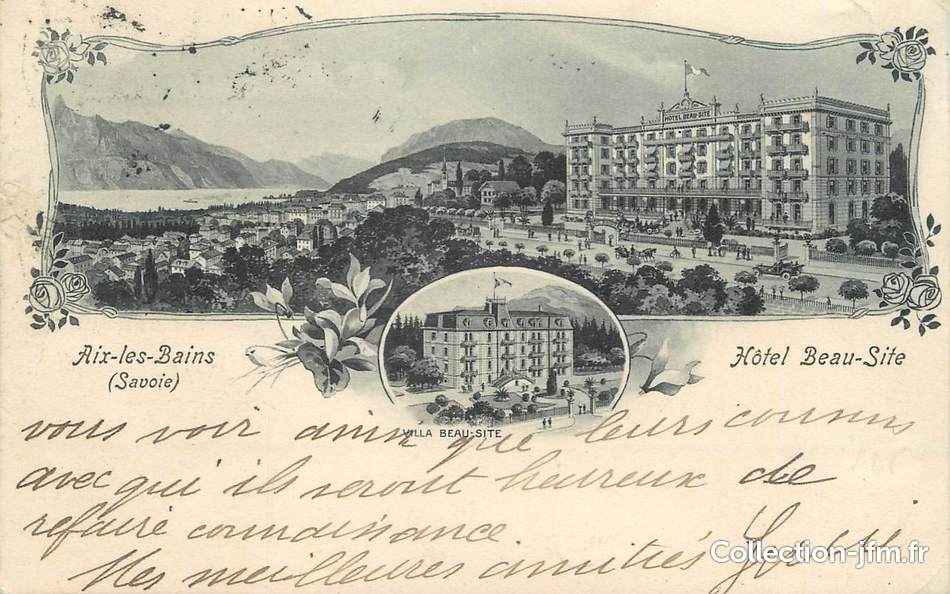 HÔTEL BEAU-SITE
Aix-les-Bains
(Savoie)
Hôtel Beau-Site
VILLA BEAU-SITE
vous voir ainsi que leurs
avec qui ils seront heureux de
refaire connaissance
Mes meilleures amitiés
Collection-jfm.fr